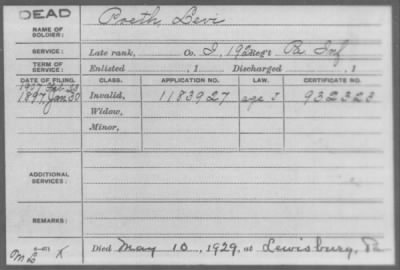 DEAD
NAME OF SOLDIER:
Levi
SERVICE:
Late rank, Co. I, 192 Reg't Pa. Inf
TERM OF SERVICE:
Enlisted , 1 Discharged , 1
DATE OF FILING. CLASS. APPLICATION NO. LAW. CERTIFICATE NO.
1907 Feb
1897, Jan 30 Invalid, 1183927 age 932323
Widow,
Minor,
ADDITIONAL SERVICES:
REMARKS:
Died May 10, 1929, at Lewisburg, Pa